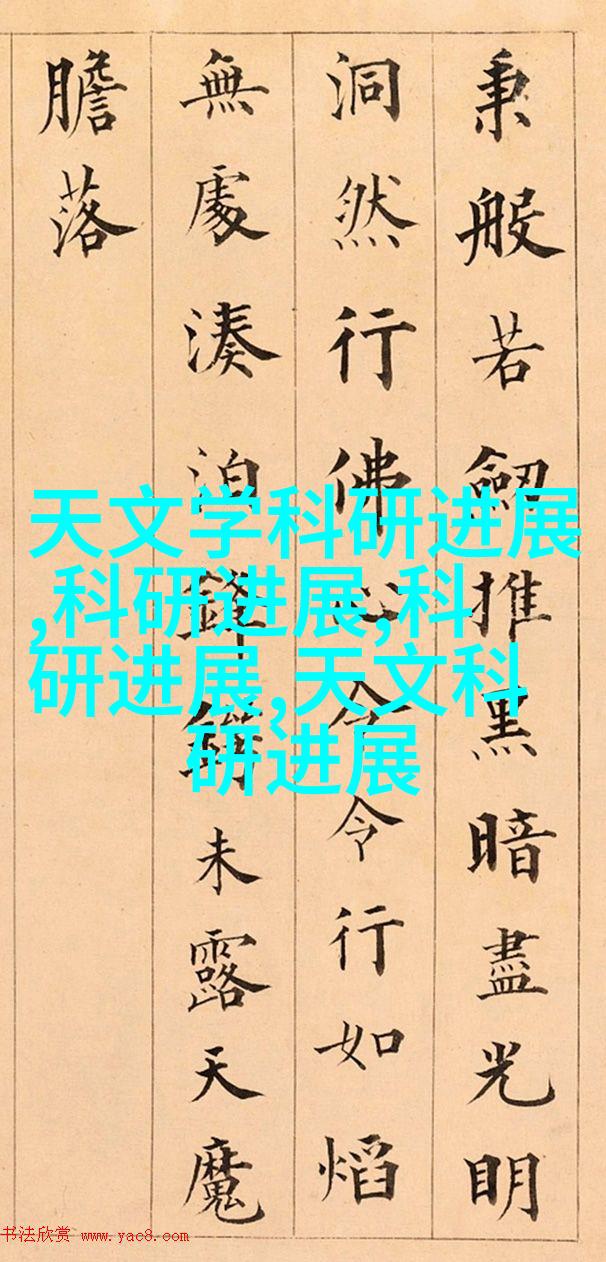 秉般若劒推黑暗盡光明
洞然行佛心令令行如熖
無處湊泊鋒鋩未露天魔
膽落
天文学科研进展
,科研进展,科
研进展,天文科
研进展
书法欣赏 www.yac8.com